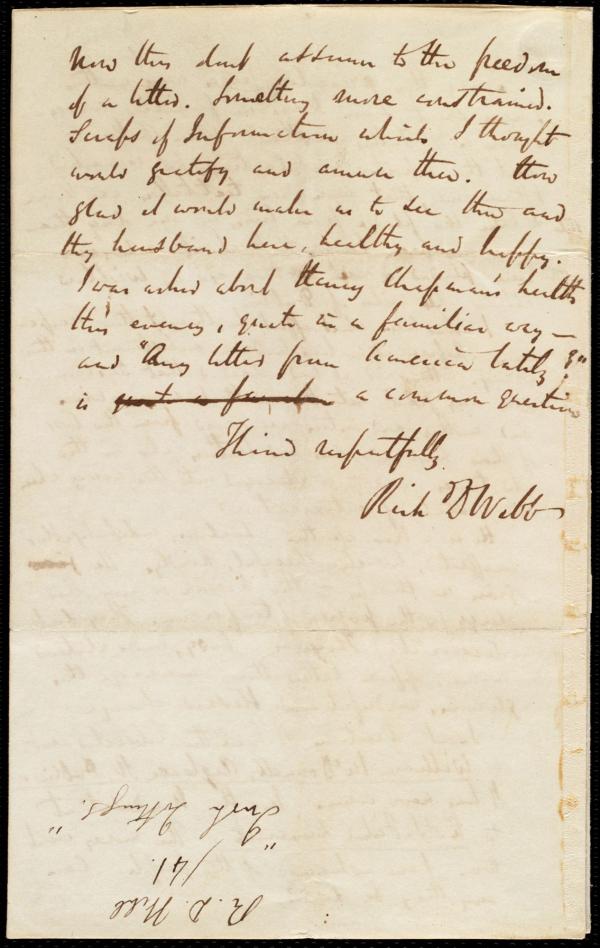 Now this dont assume to the freedom
of a letter. Something more constrained.
Scraps of Information which I thought
would gratify and amuse thee. How
glad it would make us to see thee and
thy husband here, healthy and happy.
I was asked about Henry Chapman's health
this evening, quite in a familiar way —
and "Any letter from America lately?"
is quite a familiar a common question
Thine respectfully
Rich D Webb
R. D. Webb
/41.
"Irish Jottings."